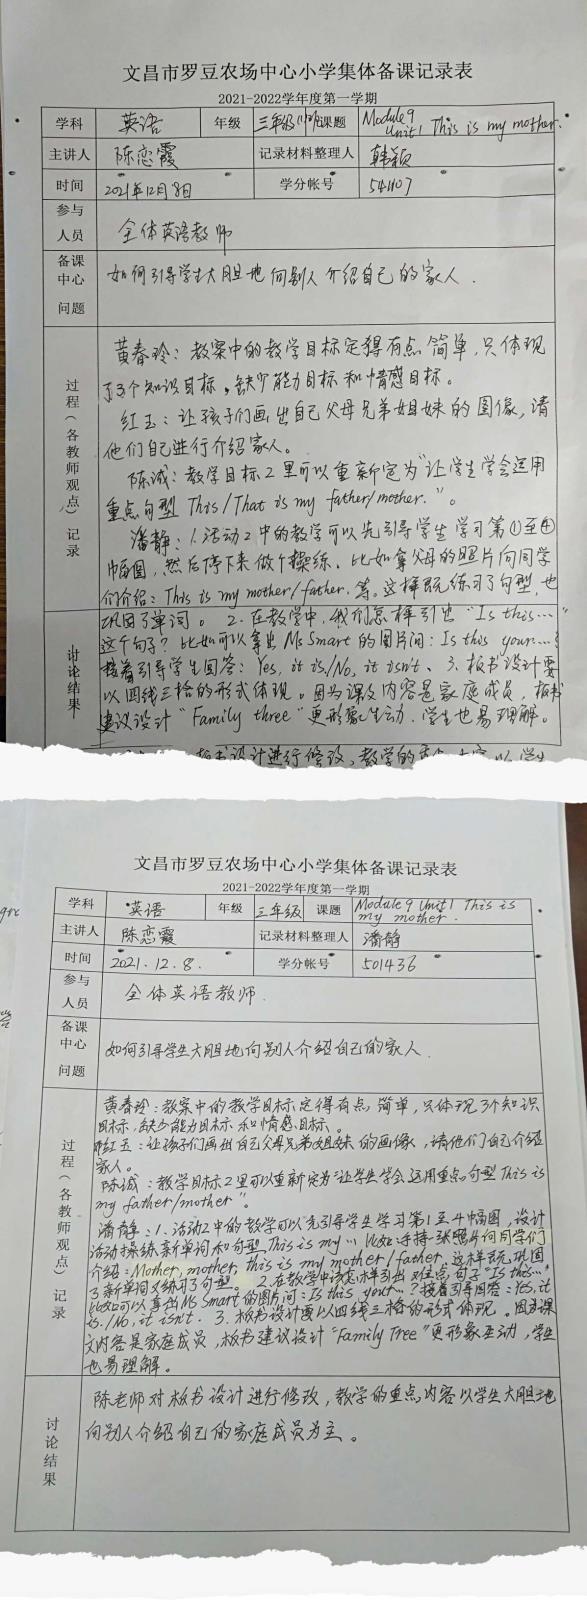 文昌市罗豆农场中心小学集体备课记录表
2021-2022学年度第一学期
学科 英语 年级 三年级 课题 Module 9 Unit1 This is my mother.
主讲人 陈恋霞 记录材料整理人 韩颖
时间 2021年12月8日 学分帐号 541107
参与
人员 全体英语教师
备课
中心 如何引导学生大胆地向别人介绍自己的家人.
问题
过程(各教师观点)记录
黄春玲:教案中的教学目标定得有点简单,只体现
了3个知识目标,缺少能力目标和情感目标。
红玉:让孩子们画出自己父母兄弟姐妹的图像,请
他们自己进行介绍家人。
陈诚:教学目标2里可以重新定为“让学生学会运用
重点句型This/That is my father/mother.”。
潘静:1.活动2中的教学可以先引导学生学习第①至④
幅图,然后停下来做个操练、比如拿父母的照片向同学
们介绍:This is my mother/father.等。这样既练习了句型,也
巩固了单词。2.在教学中,我们怎样引出“Is this...”
这个句子?比如可以拿出Ms Smart的图片问:Is this your...?
接着引导学生回答:Yes, it is./No, it isn't、3.板书设计要
以四线三格的形式体现。因为课文内容是家庭成员,板书
建议设计“Family three”更形象生动,学生也易理解。
讨论结果
板书设计进行修改,教学的重
文昌市罗豆农场中心小学集体备课记录表
2021-2022学年度第一学期
学科 英语 年级 三年级 课题 Module 9 Unit1 This is
my mother.
主讲人 陈恋霞 记录材料整理人 潘静
时间 2021.12.8. 学分帐号 501436
参与
人员 全体英语教师.
备课
中心 如何引导学生大胆地向别人介绍自己的家人.
问题
过程(各教师观点)记录
黄春玲:教案中的教学目标定得有点简单,只体现3个知识
目标,缺少能力目标和情感目标。
红玉:让孩子们画出自己父母兄弟姐妹的画像,请他们自己介绍
家人。
陈诚:教学目标2里可以重新定为“让学生学会运用重点句型This is
my father/mother”。
潘静:1.活动2中的教学可以先引导学生学习第1至4幅图,设计
活动操练新单词和句型This is my... 比如:手持一张照片向同学们
介绍:Mother, mother, this is my mother/father.这样既巩固
了新单词又练习了句型。2.在教学中该怎样引出重点句子“Is this...”
比如可以拿出Ms Smart的图片问:Is this your...?接着引导回答:Yes, it
is./No, it isn't. 3.板书设计要以四线三格的形式体现。因为课
文内容是家庭成员,板书建议设计“Family Tree”更形象生动,学生
也易理解。
讨论结果
陈老师对板书设计进行修改,教学的重点内容以学生大胆地
向别人介绍自己的家庭成员为主。